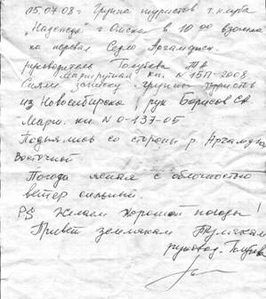 05.07.08г Группа туристов т. клуба
"Надежда" г. Омска в 10 00 взошла
на перевал Седло Аргамджи.
руководитель Голубева ТА
Маршрутная кн. N 15П-2008
Сняли записку группы туристов
из Новосибирска, рук Борисов СА
Марш. кн. N 0-137-05
Поднялись со стороны р. Аргамджи
Восточной
Погода ясная с облачностью
ветер сильный
PS Желаем хорошей погоды!
Привет землякам
руковод. Голубева